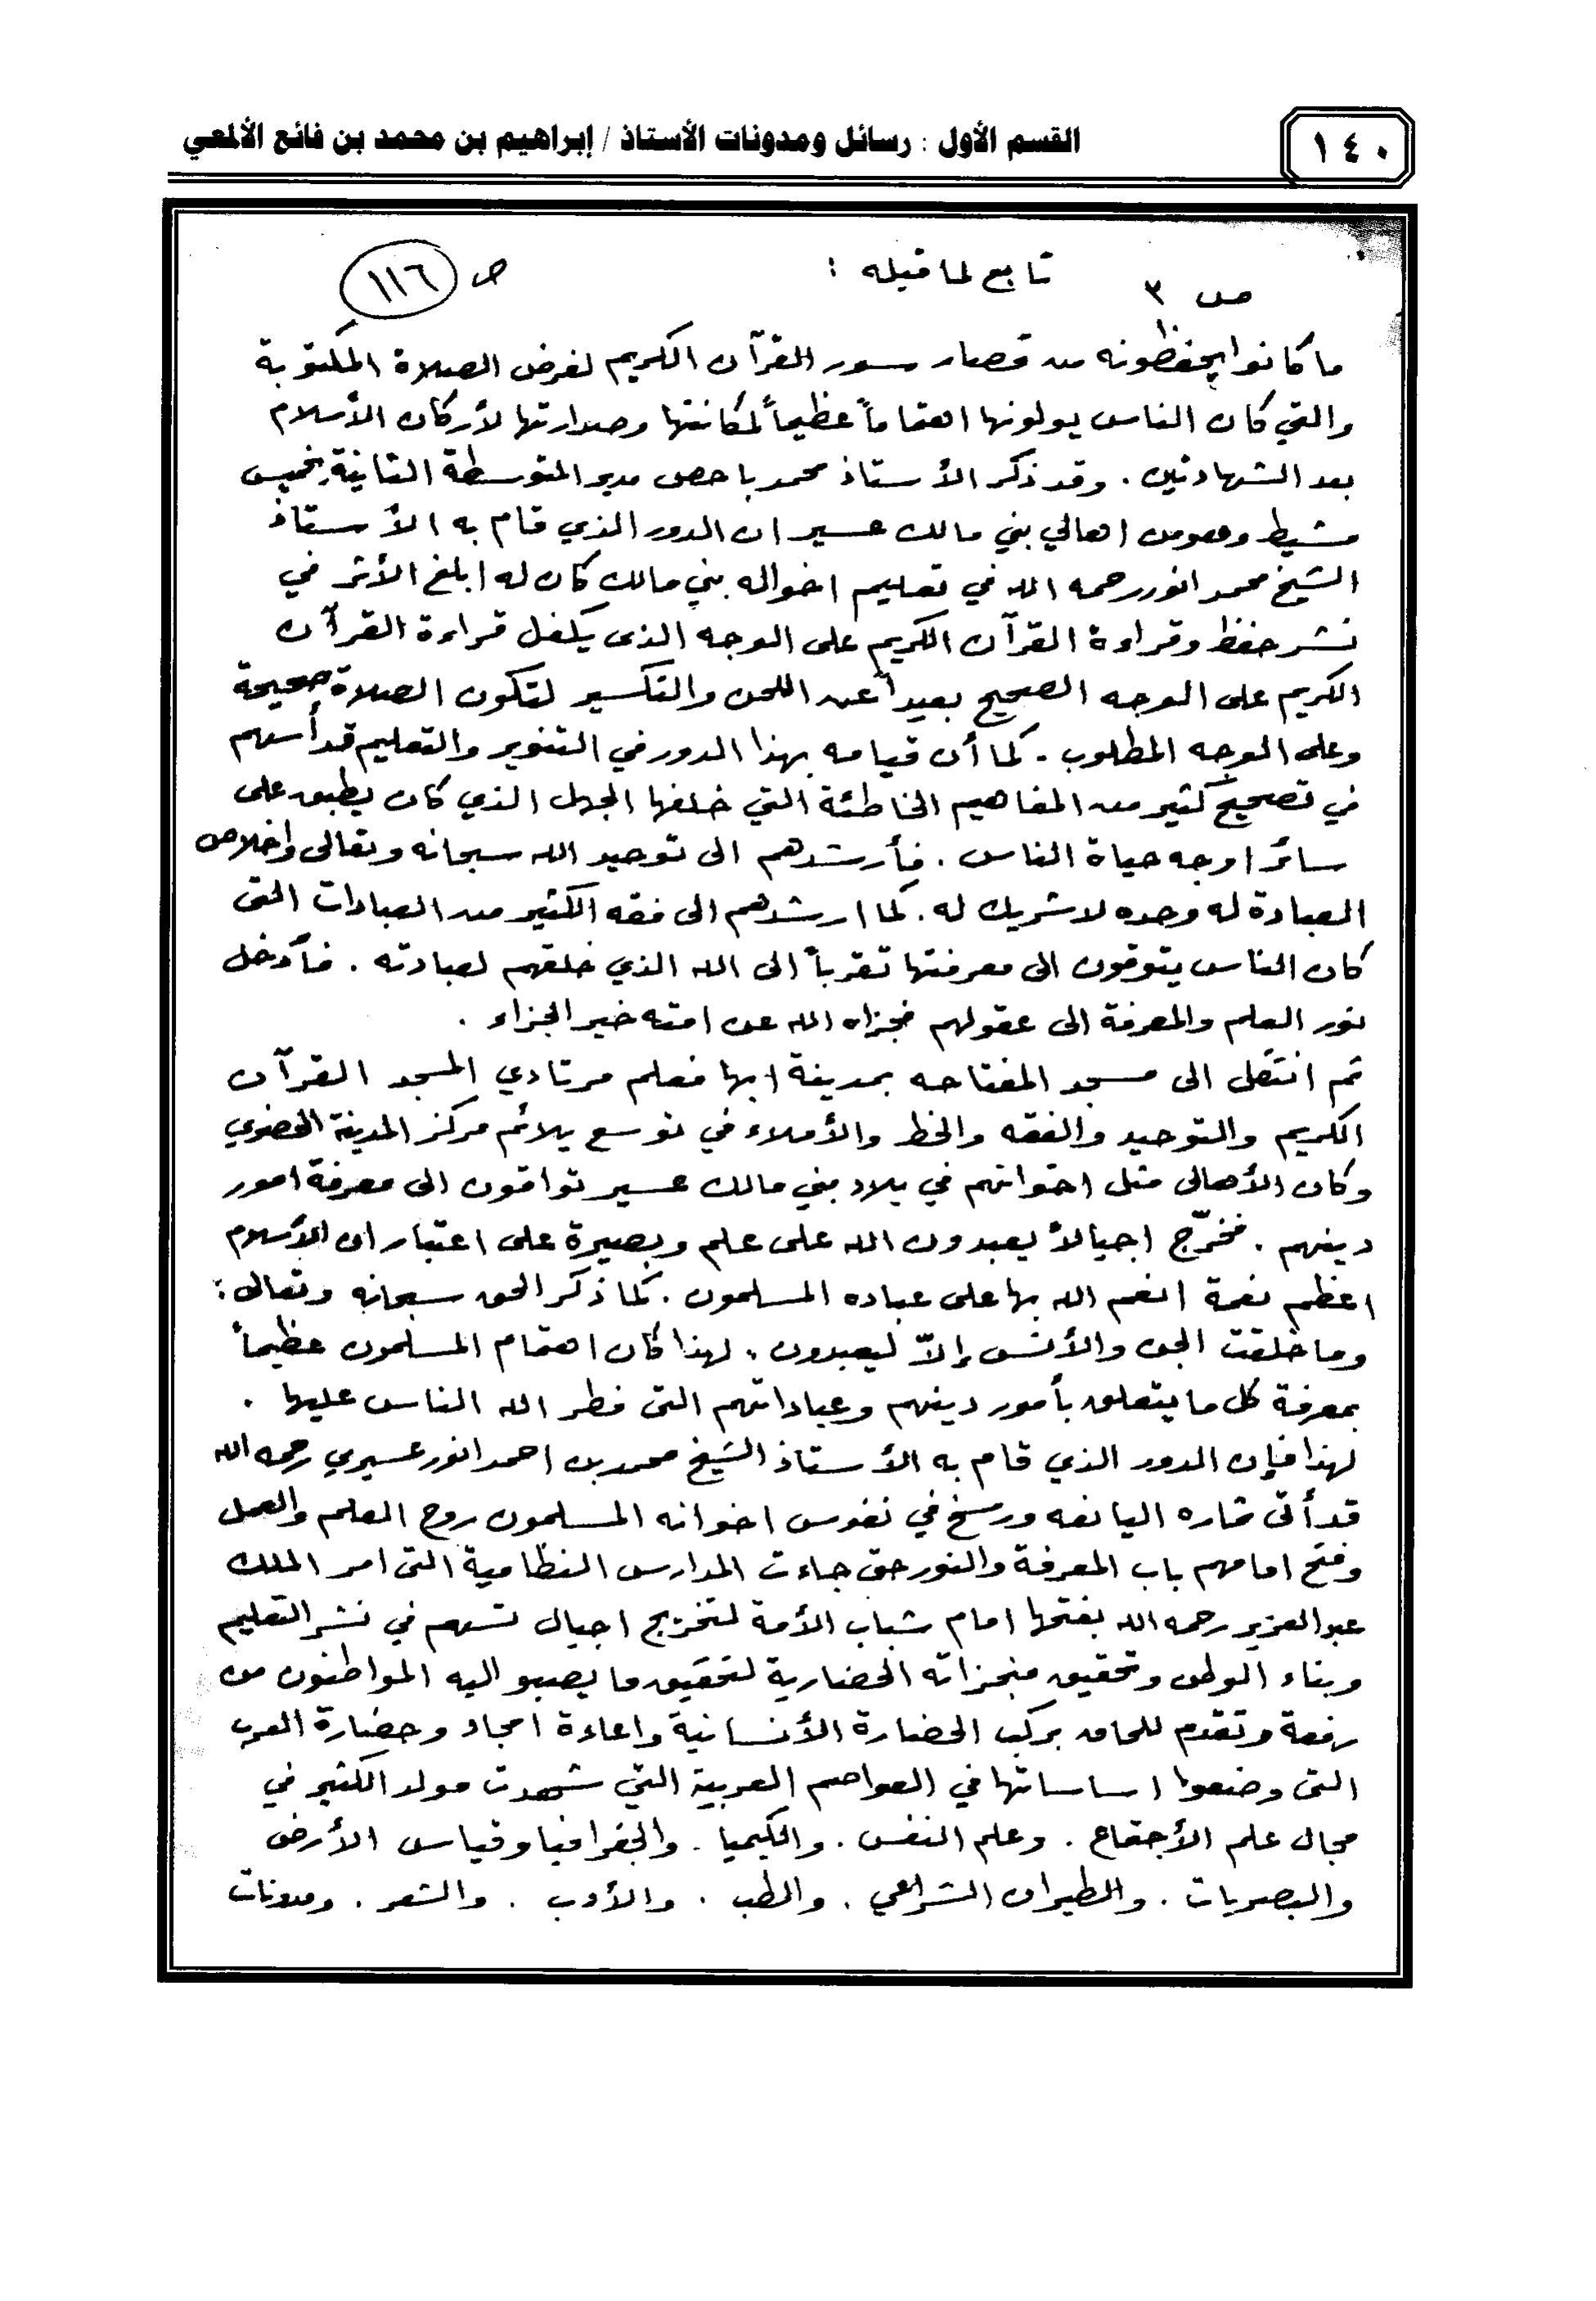 ١٤٠
القسم الأول : رسائل ومدونات الأستاذ / إبراهيم بن محمد بن فائع الألمعي
ص ٣ تابع لما قبله : ص ١١٦
ما كانوا يحفظونه من قصار سور القرآن الكريم لفرض الصلاة المكتوبة
والتي كان الناس يولونها اهتماماً عظيماً لمكانتها وصدارتها لأركان الأسلام
بعد الشهادتين . وقد ذكر الأستاذ محمد باحص مدير المتوسطة الثانية بخميس
مشيط وهو من اهالي بني مالك عسير ان الدور الذي قام به الأستاذ
الشيخ محمد انور رحمه الله في تعليم اخواله بني مالك كان له ابلغ الأثر في
نشر حفظ وقراءة القرآن الكريم على الوجه الذى يكفل قراءة القرآن
الكريم على الوجه الصحيح بعيداً عن اللحن والتكسير لتكون الصلاة صحيحة
وعلى الوجه المطلوب . كما أن قيامه بهذا الدور في التنوير والتعليم قد أسهم
في تصحيح كثير من المفاهيم الخاطئة التي خلفها الجهل الذي كان يطبق على
سائر اوجه حياة الناس . فأرشدهم الى توحيد الله سبحانه وتعالى وإخلاص
العبادة له وحده لا شريك له . كما ارشدهم الى فقه الكثير من العبادات التى
كان الناس يتوقون الى معرفتها تقرباً الى الله الذي خلقهم لعبادته . فأدخل
نور العلم والمعرفة الى عقولهم فجزاه الله عن امته خير الجزاء .
ثم انتقل الى مسجد المفتاحه بمدينة ابها فعلم مرتادي المسجد القرآن
الكريم والتوحيد والفقه والخط والأملاء في توسع يلائم مركز المدينة الحضري
وكان الأهالى مثل اخوانهم في بلاد بني مالك عسير تواقون الى معرفة امور
دينهم . فخرّج اجيالاً يعبدون الله على علم وبصيرة على اعتبار ان الأسلام
اعظم نعمة انعم الله بها على عباده المسلمون . كما ذكر الحق سبحانه وتعالى :
وما خلقت الجن والأنس إلاّ ليعبدون . لهذا كان اهتمام المسلمون عظيماً
بمعرفة كل ما يتعلق بأمور دينهم وعباداتهم التى فطر الله الناس عليها .
لهذا فإن الدور الذي قام به الأستاذ الشيخ محمد بن احمد انور عسيري رحمه الله
قد أتى ثماره اليانعه ورسخ في نفوس اخوانه المسلمون روح العلم والعمل
وفتح امامهم باب المعرفة والنور حتى جاءت المدارس النظامية التى امر الملك
عبدالعزيز رحمه الله بفتحها امام شباب الأمة لتخريج اجيال تسهم في نشر التعليم
وبناء الوطن وتحقيق منجزاته الحضارية لتحقيق ما يصبو اليه المواطنون من
رفعة وتقدم للحاق بركب الحضارة الأنسانية واعادة امجاد وحضارة العرب
التى وضعوا اساساتها في العواصم العربية التي شهدت مولد الكثير في
مجال علم الأجتماع . وعلم النفس . والكيميا . والجغرافيا وقياس الأرض
والبصريات . والطيران الشراعي . والطب . والأدب . والشعر . ومدونات